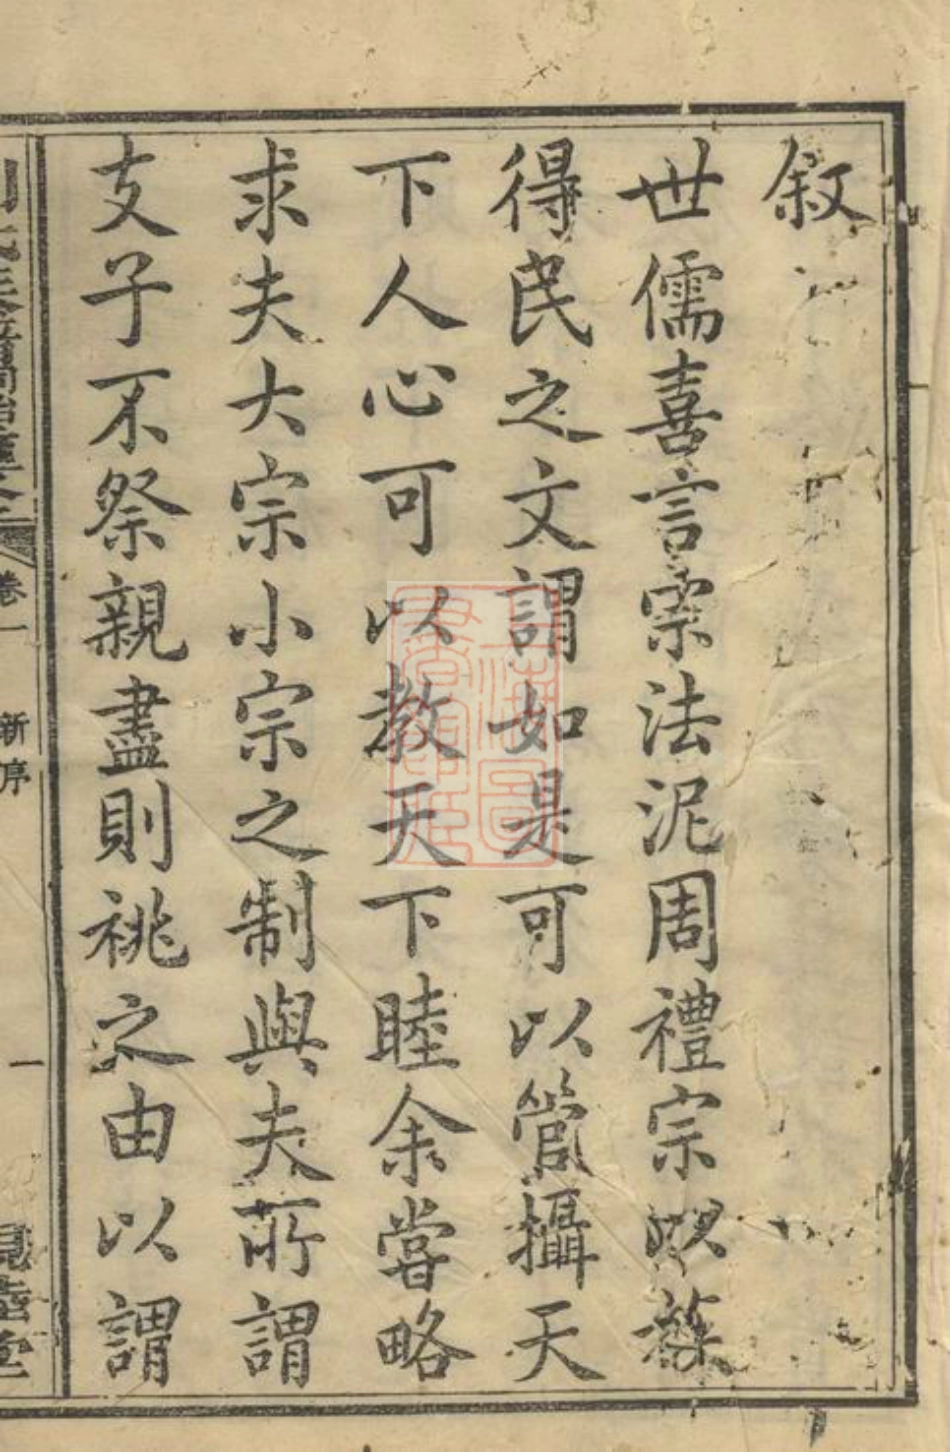 敘
世儒喜言宗法泥周禮宗以族
得民之文謂如是可以管攝天
下人心可以教天下睦余嘗略
求夫大宗小宗之制與夫所謂
支子不祭親盡則祧之由以謂
卷一
新序
一
睦堂